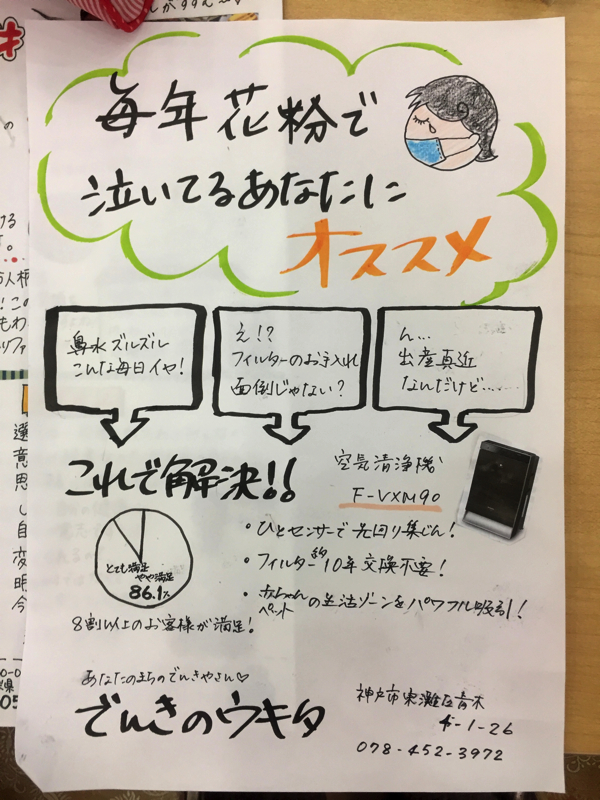 毎年花粉で
泣いてるあなたに
オススメ
鼻水ズルズル
こんな毎日イヤ!
え!?
フィルターのお手入れ
面倒じゃない?
ん…
出産真近
なんだけど……
これで解決!!
空気清浄機
F-VXM90
とても満足
やや満足
86.1%
8割以上のお客様が満足!
・ひとセンサーで先回り集じん!
・フィルター約10年交換不要!
・赤ちゃん
ペット
の生活ゾーンをパワフル吸引!
あなたのまちのでんきやさん♡
でんきのウキタ
神戸市東灘区青木
4-1-26
078-452-3972
選
意
思
し
自
変
明
今